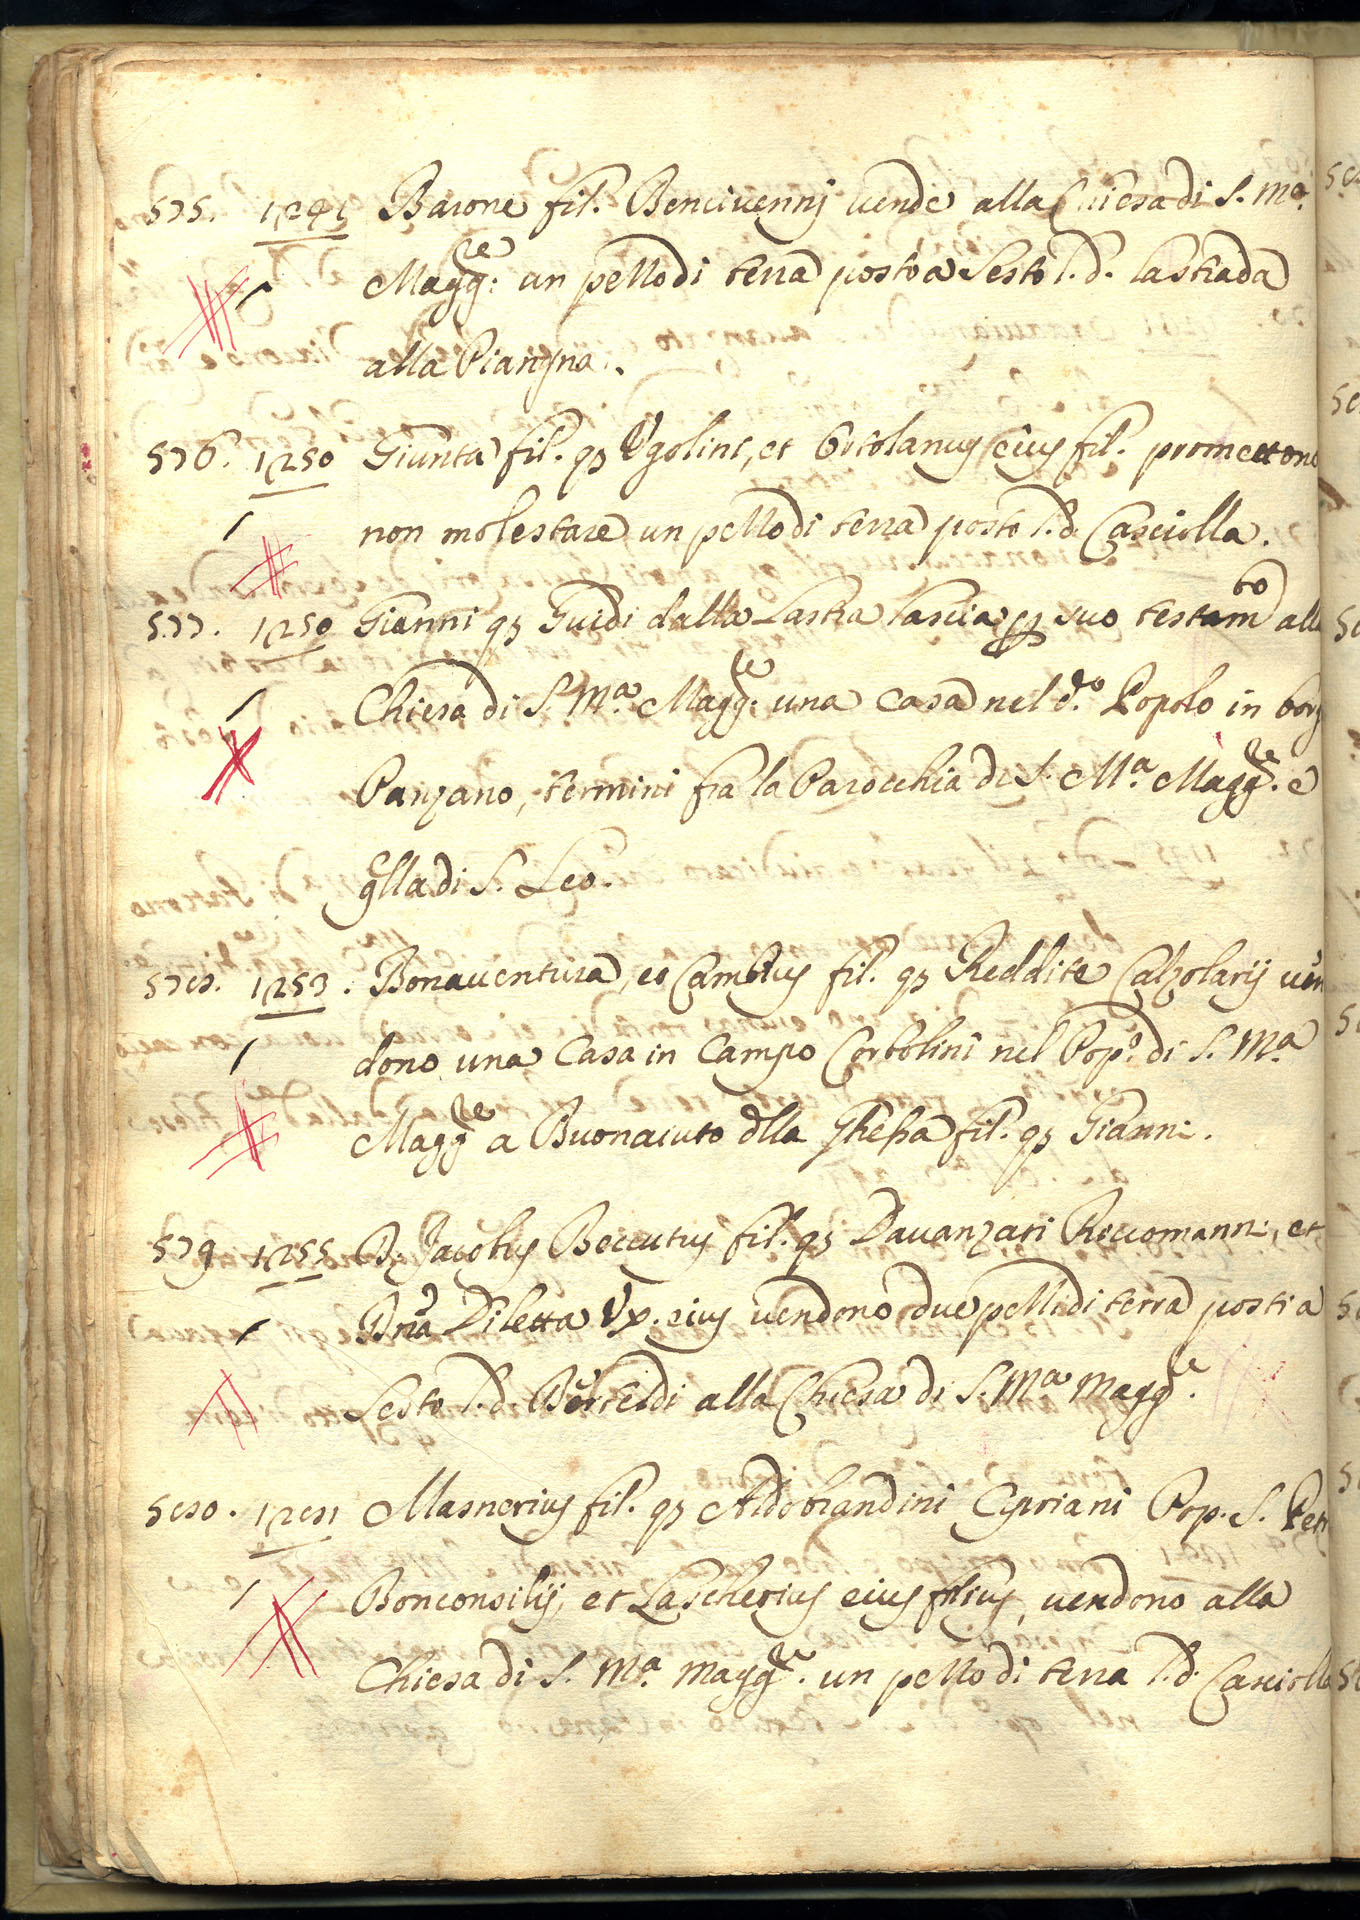 575. 1241 Barone fil. Bencivennj vende alla Chiesa di S. Ma.
Magg.re un pezzo di terra posto a Sesto l.d. la strada
alla Pianyna.
576. 1250 Giunta fil. qz Ugolini, et Ortolanus eius fil. promettono
non molestare un pezzo di terra posto l.d. Casciolla.
577. 1250 Gianni qz Guidi dalla Lastra lascia p suo testamto alla
Chiesa di S. Ma. Magg.re una casa nel do. Popolo in borg
Panzano, termini fra la Parocchia di S. Ma. Magg.re e
qlla di S. Leo.
578. 1253. Bonaventura, et Cambius fil. qz Reddite Calzolarij ven
dono una Casa in Campo Corbolini nel Popo. di S. Ma
Magg.re a Buonaiuto dlla fil. qz Gianni.
579 1255 D. Jacobus Beccutus fil. qz Davanzati Reccomanni, et
Dna Diletta Ux. eius vendono due pezzi di terra posti a
Sesto l.d. alla Chiesa di S. Ma Magg.re
580. 1281 Masnerius fil. qz Aldobrandini Cipriani Pop. S. Petr
Bonconsilij, et Lascherius eius filius, vendono alla
Chiesa di S. Ma. Magg.re un pezzo di terra l.d. Casciolla